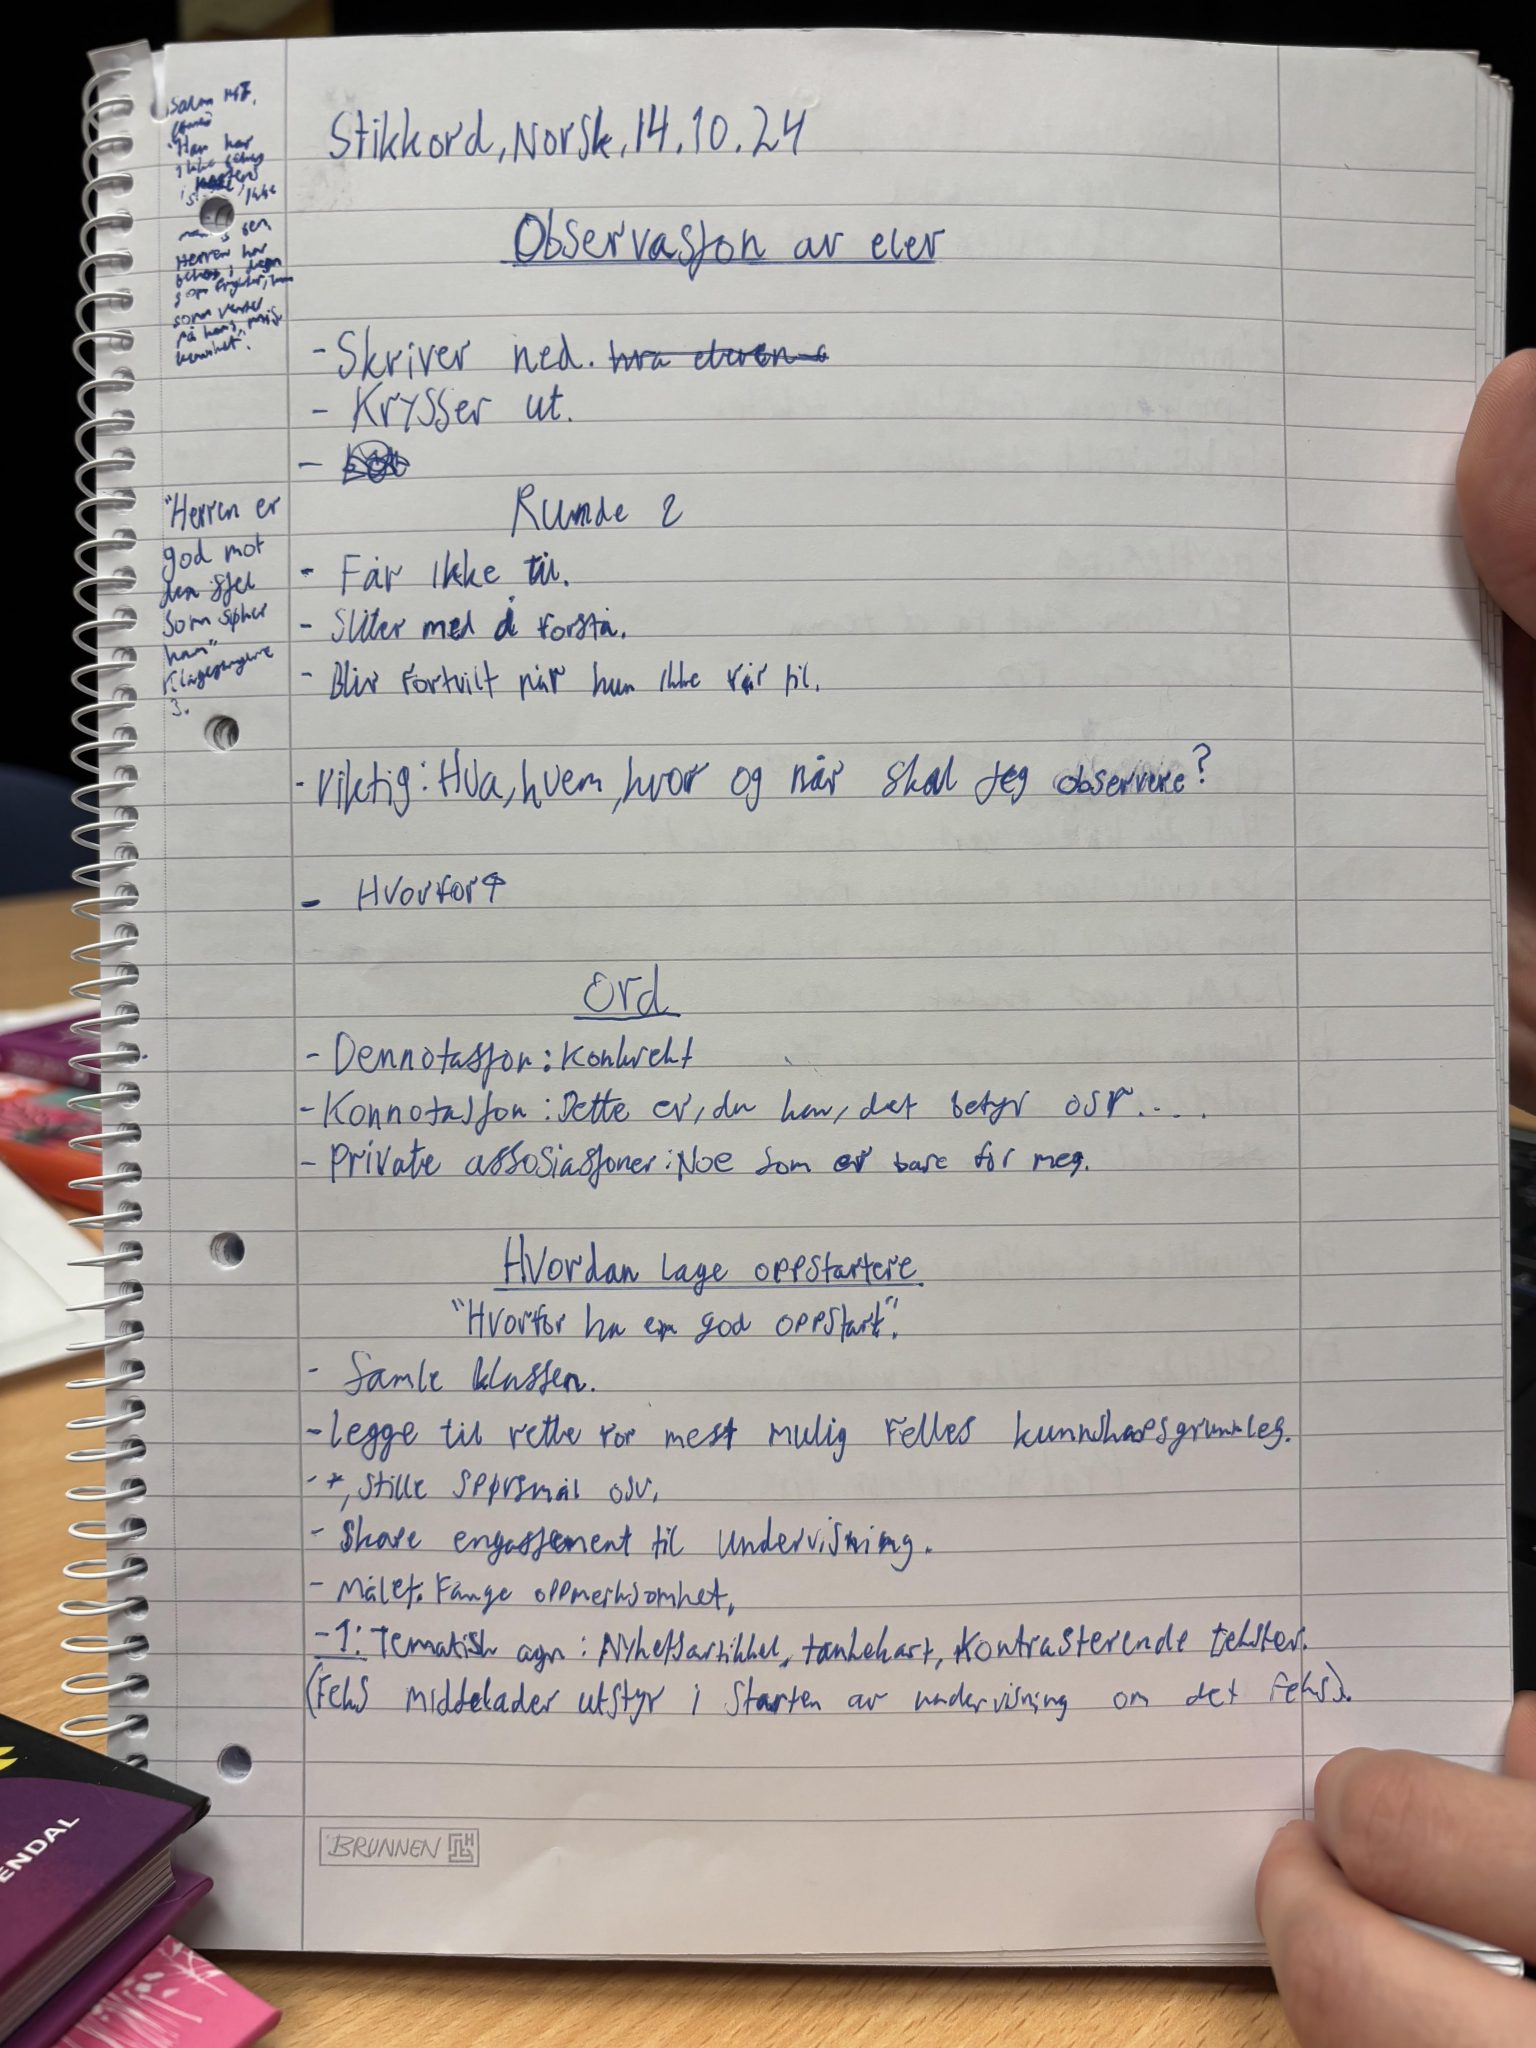 Stikkord, Norsk, 14.10.24
Observasjon av elev
- Skriver ned.
- Krysser ut.
-
Runde 2
- Får ikke til.
- Sliter med å forstå.
- Blir fortvilt når hun ikke får til.
- Viktig: Hva, hvem, hvor og når skal jeg observere?
- Hvorfor?
Ord
- Dennotasjon: Konkret
- Konnotasjon: Dette er, du kan, det betyr osv....
- Private assosiasjoner: Noe som er bare for meg.
Hvordan lage oppstartere
"Hvorfor ha en god oppstart".
- Samle klassen.
- Legge til rette for mest mulig felles kunnskapsgrunnlag.
- *, stille spørsmål osv.
- Skape engasjement til undervisning.
- Målet: Fange oppmerksomhet.
- 1: Tematisk agn: Nyhetsartikkel, tankekart, kontrasterende tekster.
(Feks middelader utstyr i starten av undervisning om det feks).
Salm 147.
"Han har
ikke
i
ikke
men
Herren har
behag i dem
som frykter ham
som venter
på hans mis
kunnhet".
"Herren er
god mot
den sjel
som søker
ham"
Klagesangene
3.
BRUNNEN
ENDAL